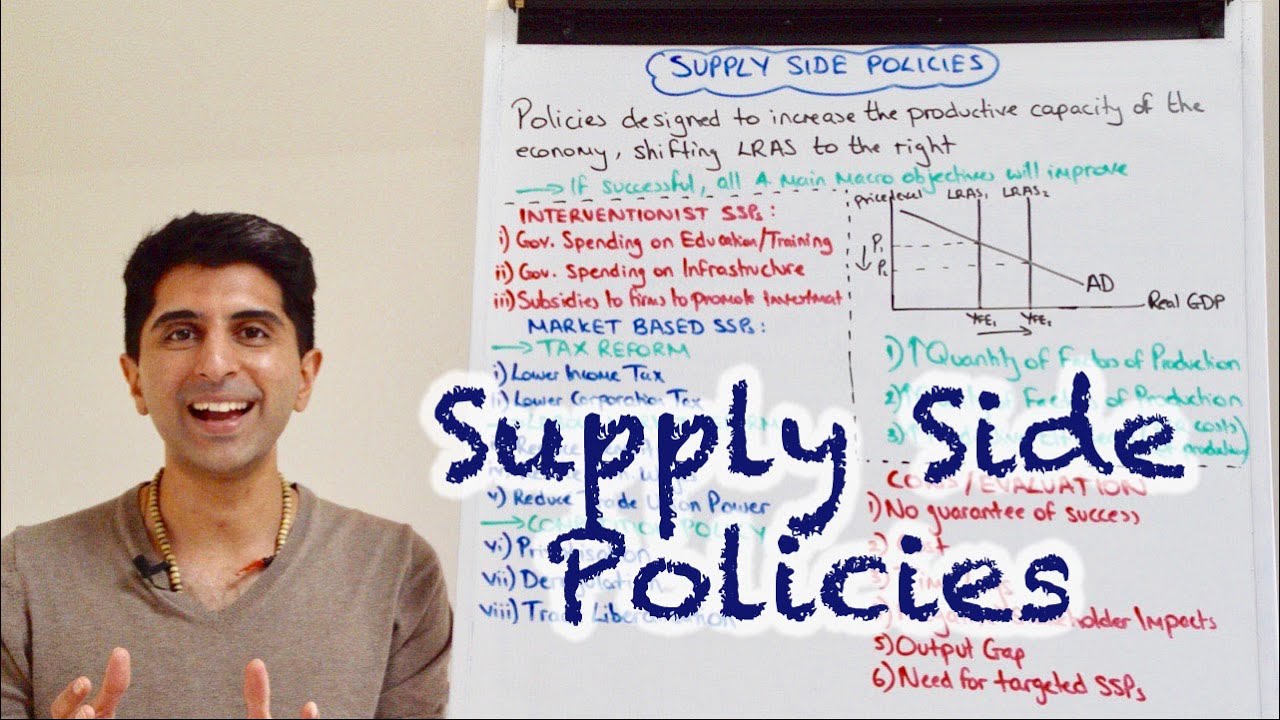 SUPPLY SIDE POLICIES
Policies designed to increase the productive capacity of the
economy, shifting LRAS to the right
→ If successful, all 4 Main Macro objectives will improve
INTERVENTIONIST SSPs:
i) Gov. Spending on Education/Training
ii) Gov. Spending on Infrastructure
iii) Subsidies to firms to promote investment
MARKET BASED SSPs:
→ TAX REFORM
i) Lower Income Tax
ii) Lower Corporation Tax
v) Reduce Trade Union Power
vi)
vii)
viii)
Price level LRAS₁ LRAS₂
P₁
AD
Real GDP
YFE₁ YFE₂
1) ↑ Quantity of Factors of Production
2) of Factors of Production
3) costs)
CONS/EVALUATION
1) No guarantee of success
2) Cost
3)
Stakeholder Impacts
5) Output Gap
6) Need for targeted SSPs
Supply Side
Policies